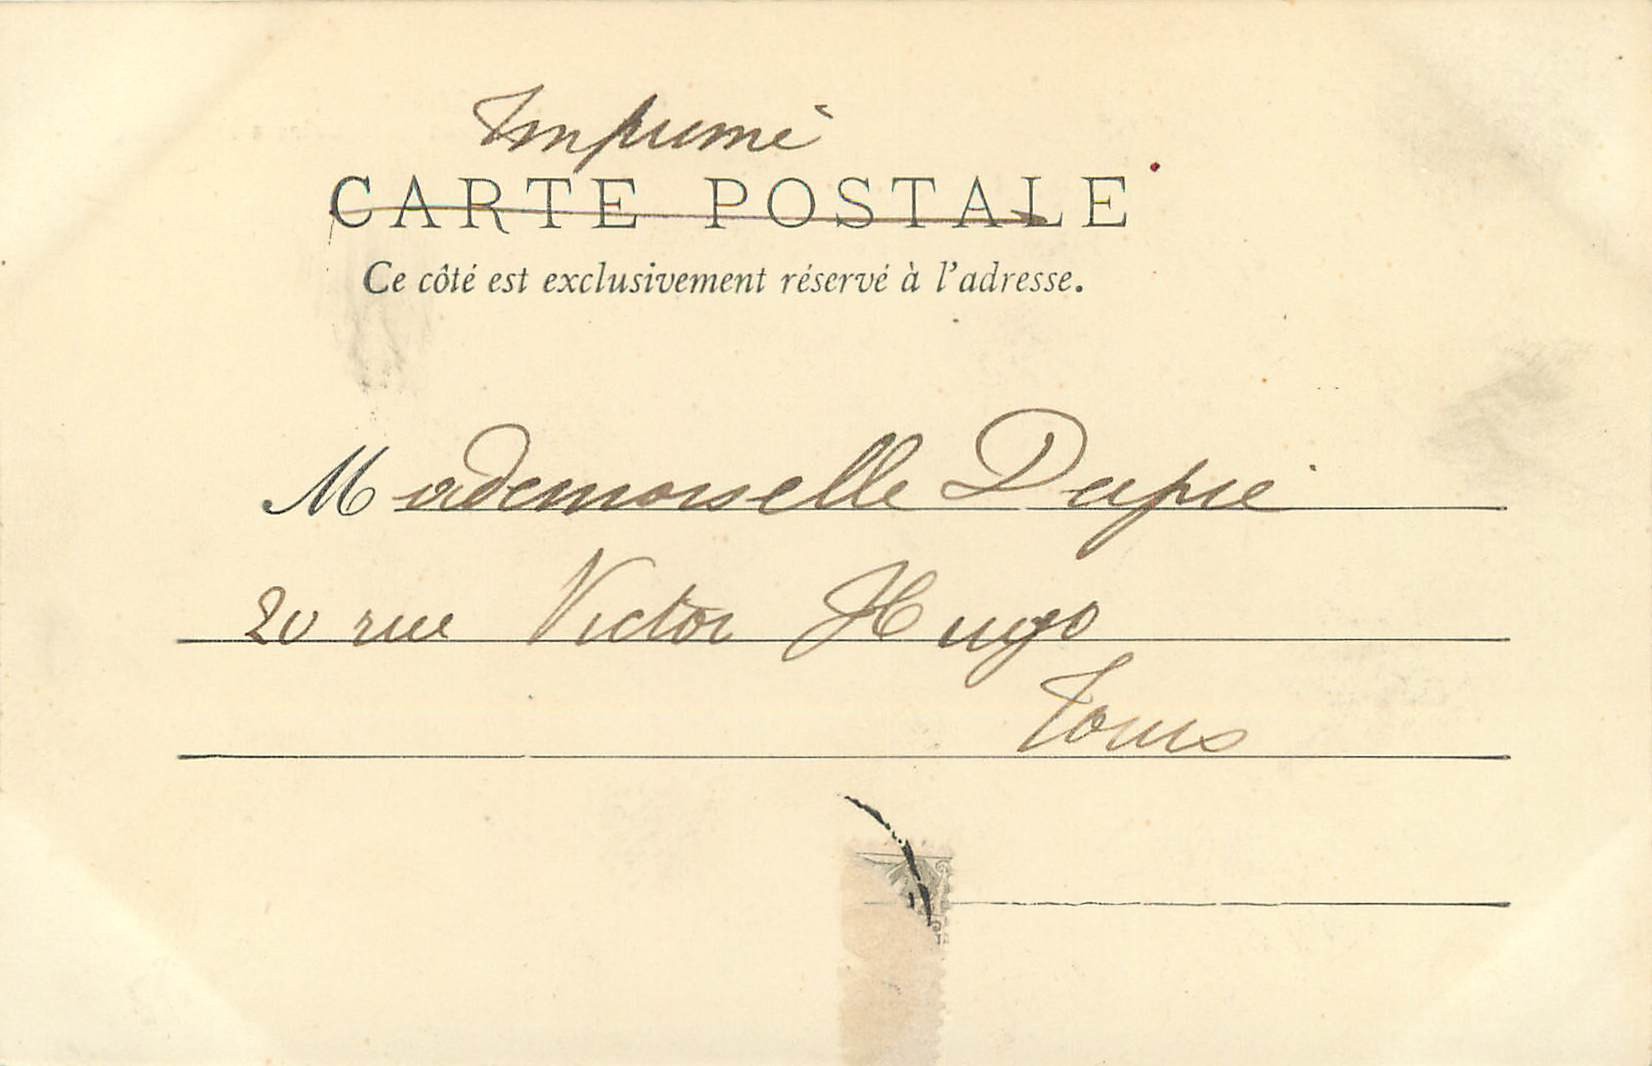 Imprimé
CARTE POSTALE
Ce côté est exclusivement réservé à l'adresse.
Mademoiselle Dupré
20 rue Victor Hugo
Tours